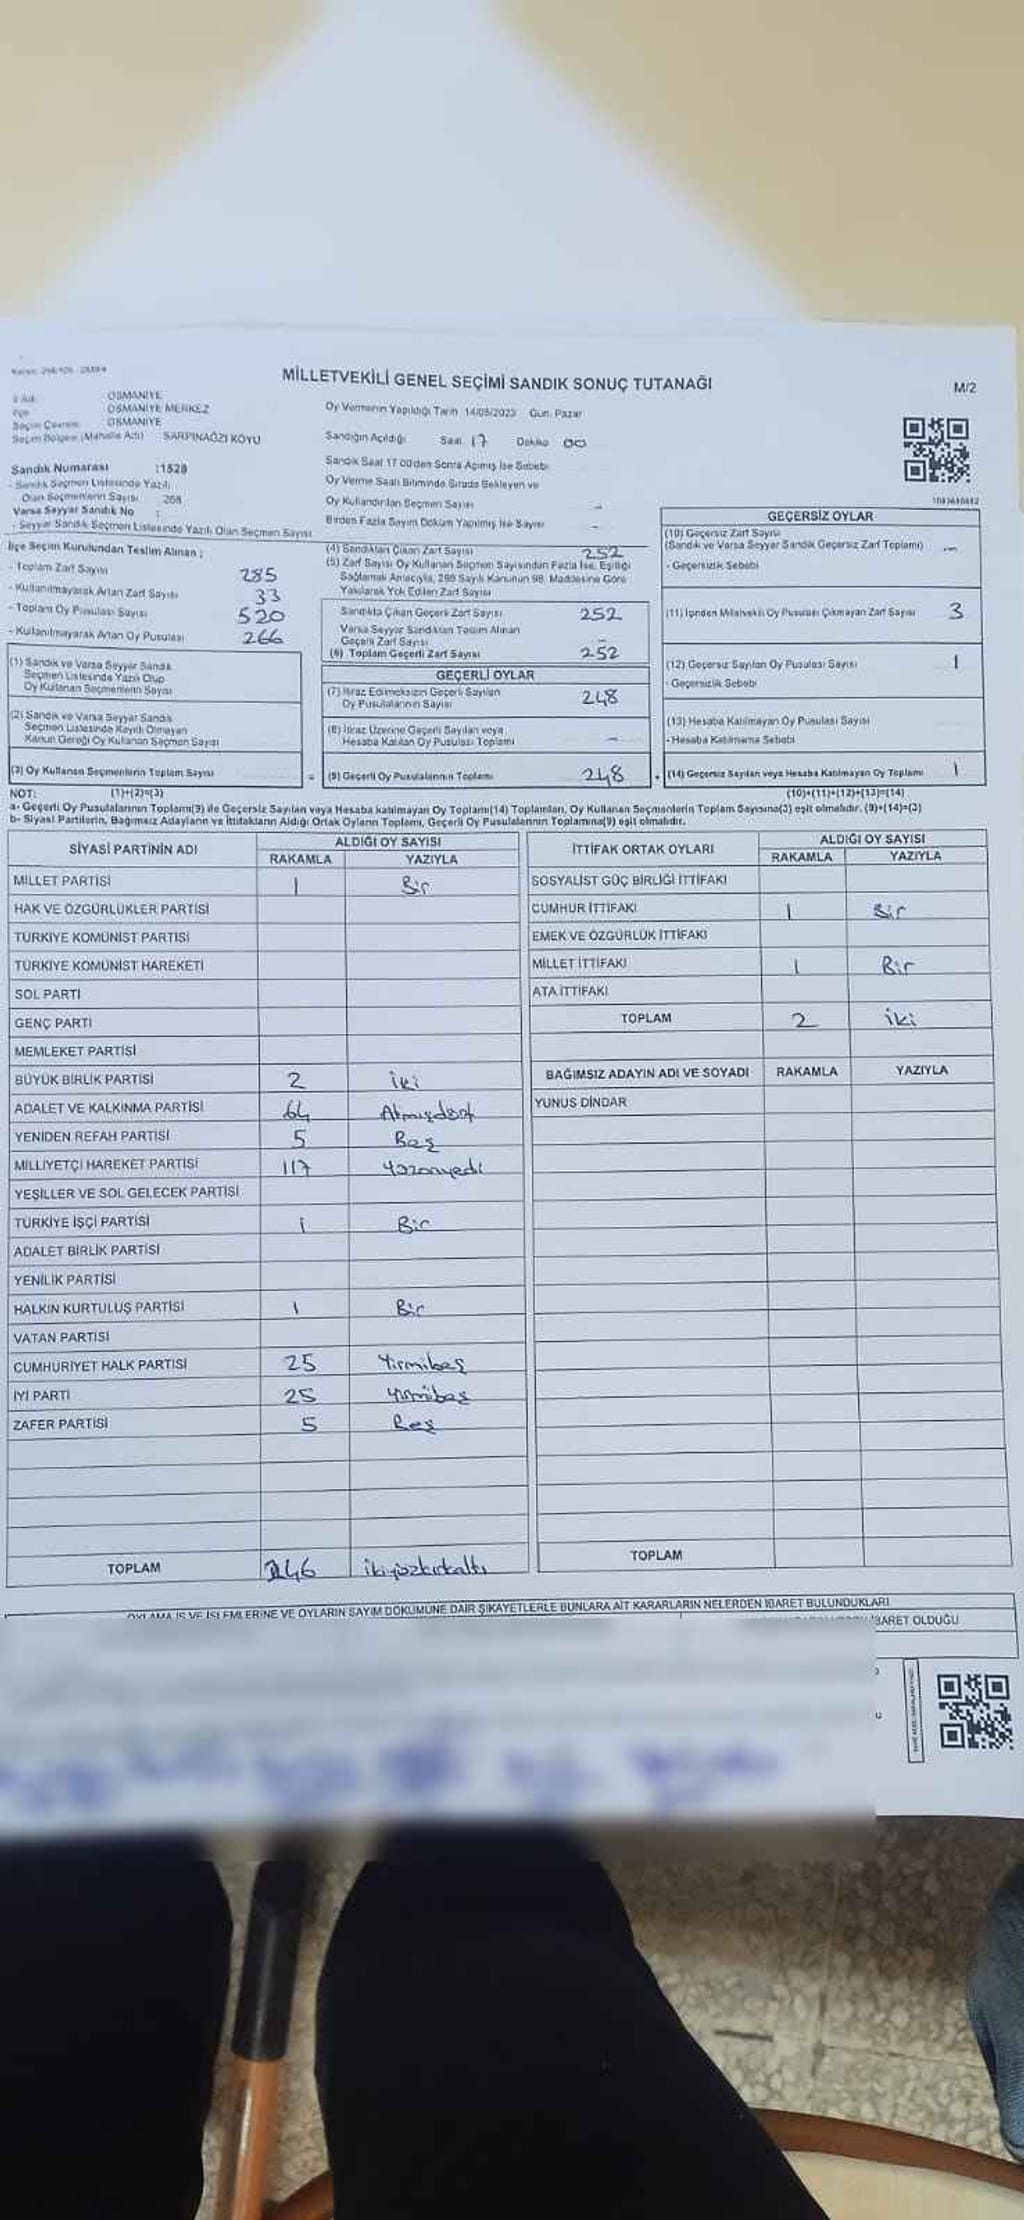 MİLLETVEKİLİ GENEL SEÇİMİ SANDIK SONUÇ TUTANAĞI
M/2
İl Adı OSMANİYE
İlçe OSMANİYE MERKEZ
Seçim Çevresi OSMANİYE
Seçim Bölgesi (Mahalle Adı) SARPINAĞZI KÖYÜ
Sandık Numarası :1528
- Sandık Seçmen Listesinde Yazılı
Olan Seçmenlerin Sayısı 268
Varsa Seyyar Sandık No :
- Seyyar Sandık Seçmen Listesinde Yazılı Olan Seçmen Sayısı
İlçe Seçim Kurulundan Teslim Alınan ;
- Toplam Zarf Sayısı 285
- Kullanılmayarak Artan Zarf Sayısı 33
- Toplam Oy Pusulası Sayısı 520
- Kullanılmayarak Artan Oy Pusulası 266
(1) Sandık ve Varsa Seyyar Sandık
Seçmen Listesinde Yazılı Olup
Oy Kullanan Seçmenlerin Sayısı
(2) Sandık ve Varsa Seyyar Sandık
Seçmen Listesinde Kayıtlı Olmayan
Kanun Gereği Oy Kullanan Seçmen Sayısı
(3) Oy Kullanan Seçmenlerin Toplam Sayısı
Oy Vermenin Yapıldığı Tarih 14/05/2023 Gün: Pazar
Sandığın Açıldığı Saat 17 Dakika 00
Sandık Saat 17.00'den Sonra Açılmış İse Sebebi
Oy Verme Saati Bitiminde Sırada Bekleyen ve
Oy Kullandırılan Seçmen Sayısı -
Birden Fazla Sayım Döküm Yapılmış İse Sayısı -
(4) Sandıktan Çıkan Zarf Sayısı 252
(5) Zarf Sayısı Oy Kullanan Seçmen Sayısından Fazla İse, Eşitliği
Sağlamak Amacıyla, 298 Sayılı Kanunun 98. Maddesine Göre
Yakılarak Yok Edilen Zarf Sayısı
Sandıkta Çıkan Geçerli Zarf Sayısı 252
Varsa Seyyar Sandıktan Teslim Alınan
Geçerli Zarf Sayısı -
(6) Toplam Geçerli Zarf Sayısı 252
GEÇERLİ OYLAR
(7) İtiraz Edilmeksizin Geçerli Sayılan
Oy Pusulalarının Sayısı 248
(8) İtiraz Üzerine Geçerli Sayılan veya
Hesaba Katılan Oy Pusulası Toplamı -
= (9) Geçerli Oy Pusulalarının Toplamı 248
GEÇERSİZ OYLAR
(10) Geçersiz Zarf Sayısı
(Sandık ve Varsa Seyyar Sandık Geçersiz Zarf Toplamı) -
- Geçersizlik Sebebi
(11) İçinden Milletvekili Oy Pusulası Çıkmayan Zarf Sayısı 3
(12) Geçersiz Sayılan Oy Pusulası Sayısı 1
- Geçersizlik Sebebi
(13) Hesaba Katılmayan Oy Pusulası Sayısı
- Hesaba Katılmama Sebebi
+ (14) Geçersiz Sayılan veya Hesaba Katılmayan Oy Toplamı 1
NOT: (1)+(2)=(3) (10)+(11)+(12)+(13)=(14)
a- Geçerli Oy Pusulalarının Toplamı(9) ile Geçersiz Sayılan veya Hesaba katılmayan Oy Toplamı(14) Toplamları, Oy Kullanan Seçmenlerin Toplam Sayısına(3) eşit olmalıdır. (9)+(14)=(3)
b- Siyasi Partilerin, Bağımsız Adayların ve İttifakların Aldığı Ortak Oyların Toplamı, Geçerli Oy Pusulalarının Toplamına(9) eşit olmalıdır.
SİYASİ PARTİNİN ADI ALDIĞI OY SAYISI
RAKAMLA YAZIYLA
MİLLET PARTİSİ 1 Bir
HAK VE ÖZGÜRLÜKLER PARTİSİ
TÜRKİYE KOMÜNİST PARTİSİ
TÜRKİYE KOMÜNİST HAREKETİ
SOL PARTİ
GENÇ PARTİ
MEMLEKET PARTİSİ
BÜYÜK BİRLİK PARTİSİ 2 İki
ADALET VE KALKINMA PARTİSİ 64 Atmışdört
YENİDEN REFAH PARTİSİ 5 Beş
MİLLİYETÇİ HAREKET PARTİSİ 117 Yüzonyedi
YEŞİLLER VE SOL GELECEK PARTİSİ
TÜRKİYE İŞÇİ PARTİSİ 1 Bir
ADALET BİRLİK PARTİSİ
YENİLİK PARTİSİ
HALKIN KURTULUŞ PARTİSİ 1 Bir
VATAN PARTİSİ
CUMHURİYET HALK PARTİSİ 25 Yirmibeş
İYİ PARTİ 25 Yirmibeş
ZAFER PARTİSİ 5 Beş
TOPLAM 246 ikiyüzkırkaltı
İTTİFAK ORTAK OYLARI ALDIĞI OY SAYISI
RAKAMLA YAZIYLA
SOSYALİST GÜÇ BİRLİĞİ İTTİFAKI
CUMHUR İTTİFAKI 1 Bir
EMEK VE ÖZGÜRLÜK İTTİFAKI
MİLLET İTTİFAKI 1 Bir
ATA İTTİFAKI
TOPLAM 2 iki
BAĞIMSIZ ADAYIN ADI VE SOYADI RAKAMLA YAZIYLA
YUNUS DİNDAR
TOPLAM
OYLAMA İŞ VE İŞLEMLERİNE VE OYLARIN SAYIM DÖKÜMÜNE DAİR ŞİKAYETLERLE BUNLARA AİT KARARLARIN NELERDEN İBARET BULUNDUKLARI
İBARET OLDUĞU